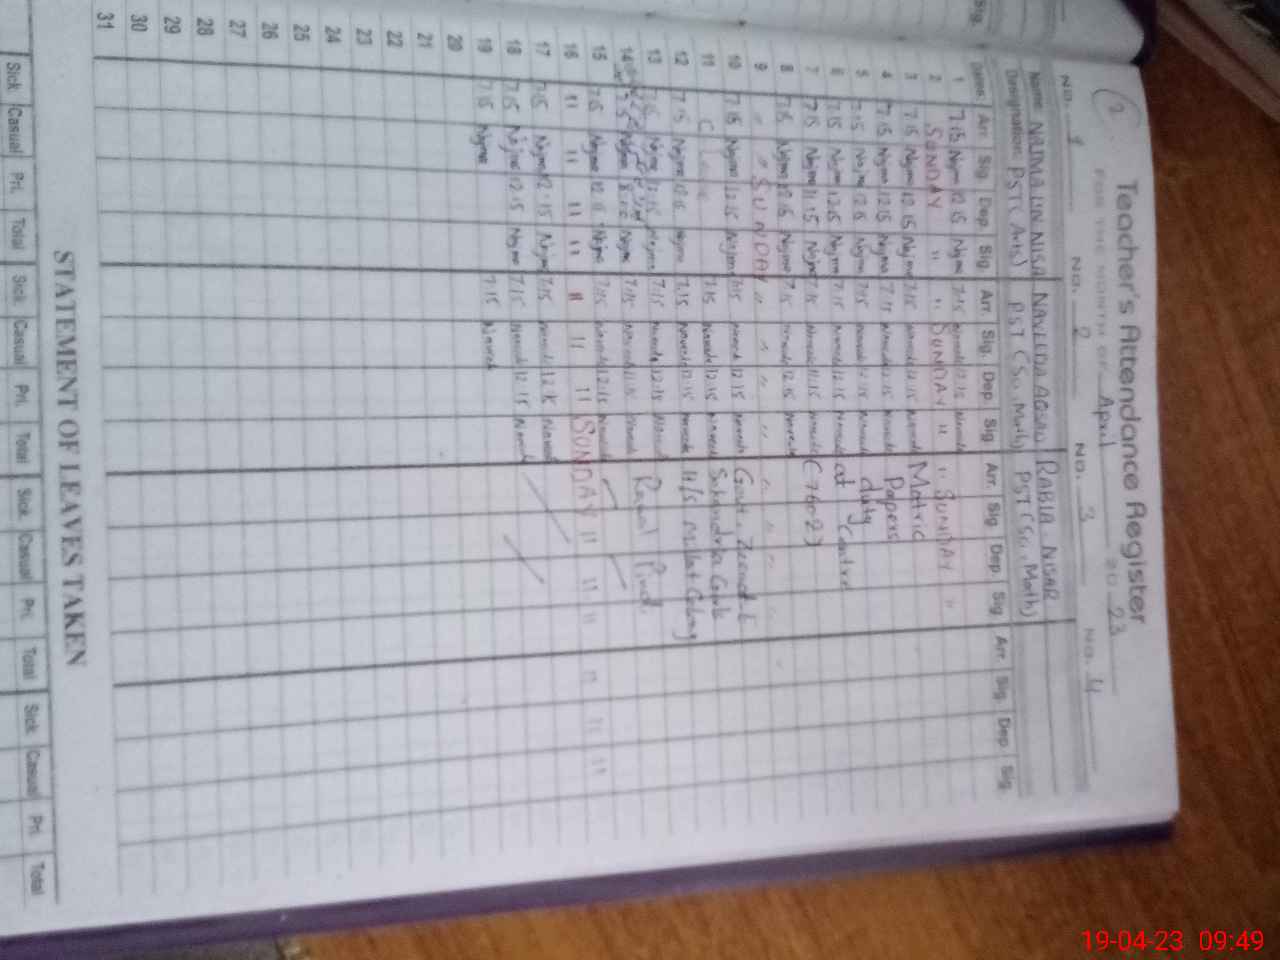 2
Teacher's Attendance Register
FOR THE MONTH OF April 20 23
NO. 1 NO. 2 NO. 3 NO. 4
Name NAJMA UN NISA NAVEEDA RABIA NISAR
Designation: PST (Arts) PST (Sc. Math) PST (Sc. Math)
Dates Arr. Sig. Dep. Sig. Arr. Sig. Dep. Sig. Arr. Sig. Dep. Sig. Arr. Sig. Dep. Sig.
1 7.15 Najma 12.15 Najma 7.15 Naveeda 12.15 Naveeda
2 SUNDAY " " SUNDAY " " SUNDAY "
3 7.15 Najma 12.15 Najma 7.15 Naveeda 12.15 Naveeda Matric
4 7.15 Najma 12.15 Najma 7.15 Naveeda 12.15 Naveeda Papers
5 7.15 Najma 12.15 Najma 7.15 Naveeda 12.15 Naveeda duty
6 7.15 Najma 12.15 Najma 7.15 Naveeda 12.15 Naveeda at Centre
7 7.15 Najma 11.15 Najma 7.15 Naveeda 11.15 Naveeda (7602)
8 7.15 Najma 12.15 Najma 7.15 Naveeda 12.15 Naveeda
9 " " SUNDAY " " " " " " "
10 7.15 Najma 12.15 Najma 7.15 Naveeda 12.15 Naveeda Govt.
11 C Leave 7.15 Naveeda 12.15 Naveeda
12 7.15 Najma 12.15 Najma 7.15 Naveeda 12.15 Naveeda H/S
13 7.15 Najma 12.15 Najma 7.15 Naveeda 12.15 Naveeda Rawal Pindi
14 Najma Najma 7.15 Naveeda Naveeda
15 7.15 Najma 12.15 Najma 7.15 Naveeda 12.15 Naveeda
16 " " " " " " " SUNDAY " " " " " "
17 7.15 Najma 12.15 Najma 7.15 Naveeda 12.15 Naveeda
18 7.15 Najma 12.15 Najma 7.15 Naveeda 12.15 Naveeda
19 7.15 Najma 7.15 Naveeda
20
21
22
23
24
25
26
27
28
29
30
31
STATEMENT OF LEAVES TAKEN
Sick Casual Pri. Total Sick Casual Pri. Total Sick Casual Pri. Total Sick Casual Pri. Total
19-04-23 09:49